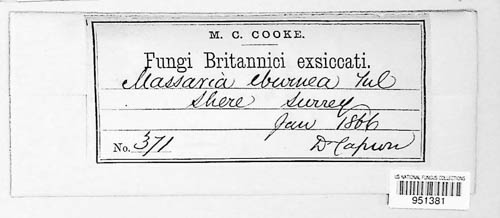 M. C. COOKE.
Fungi Britannici exsiccati.
Massaria eburnea Tul
Shere Surrey
Jan 1866
No. 371 Dr Capron
US NATIONAL FUNGUS COLLECTIONS
951381